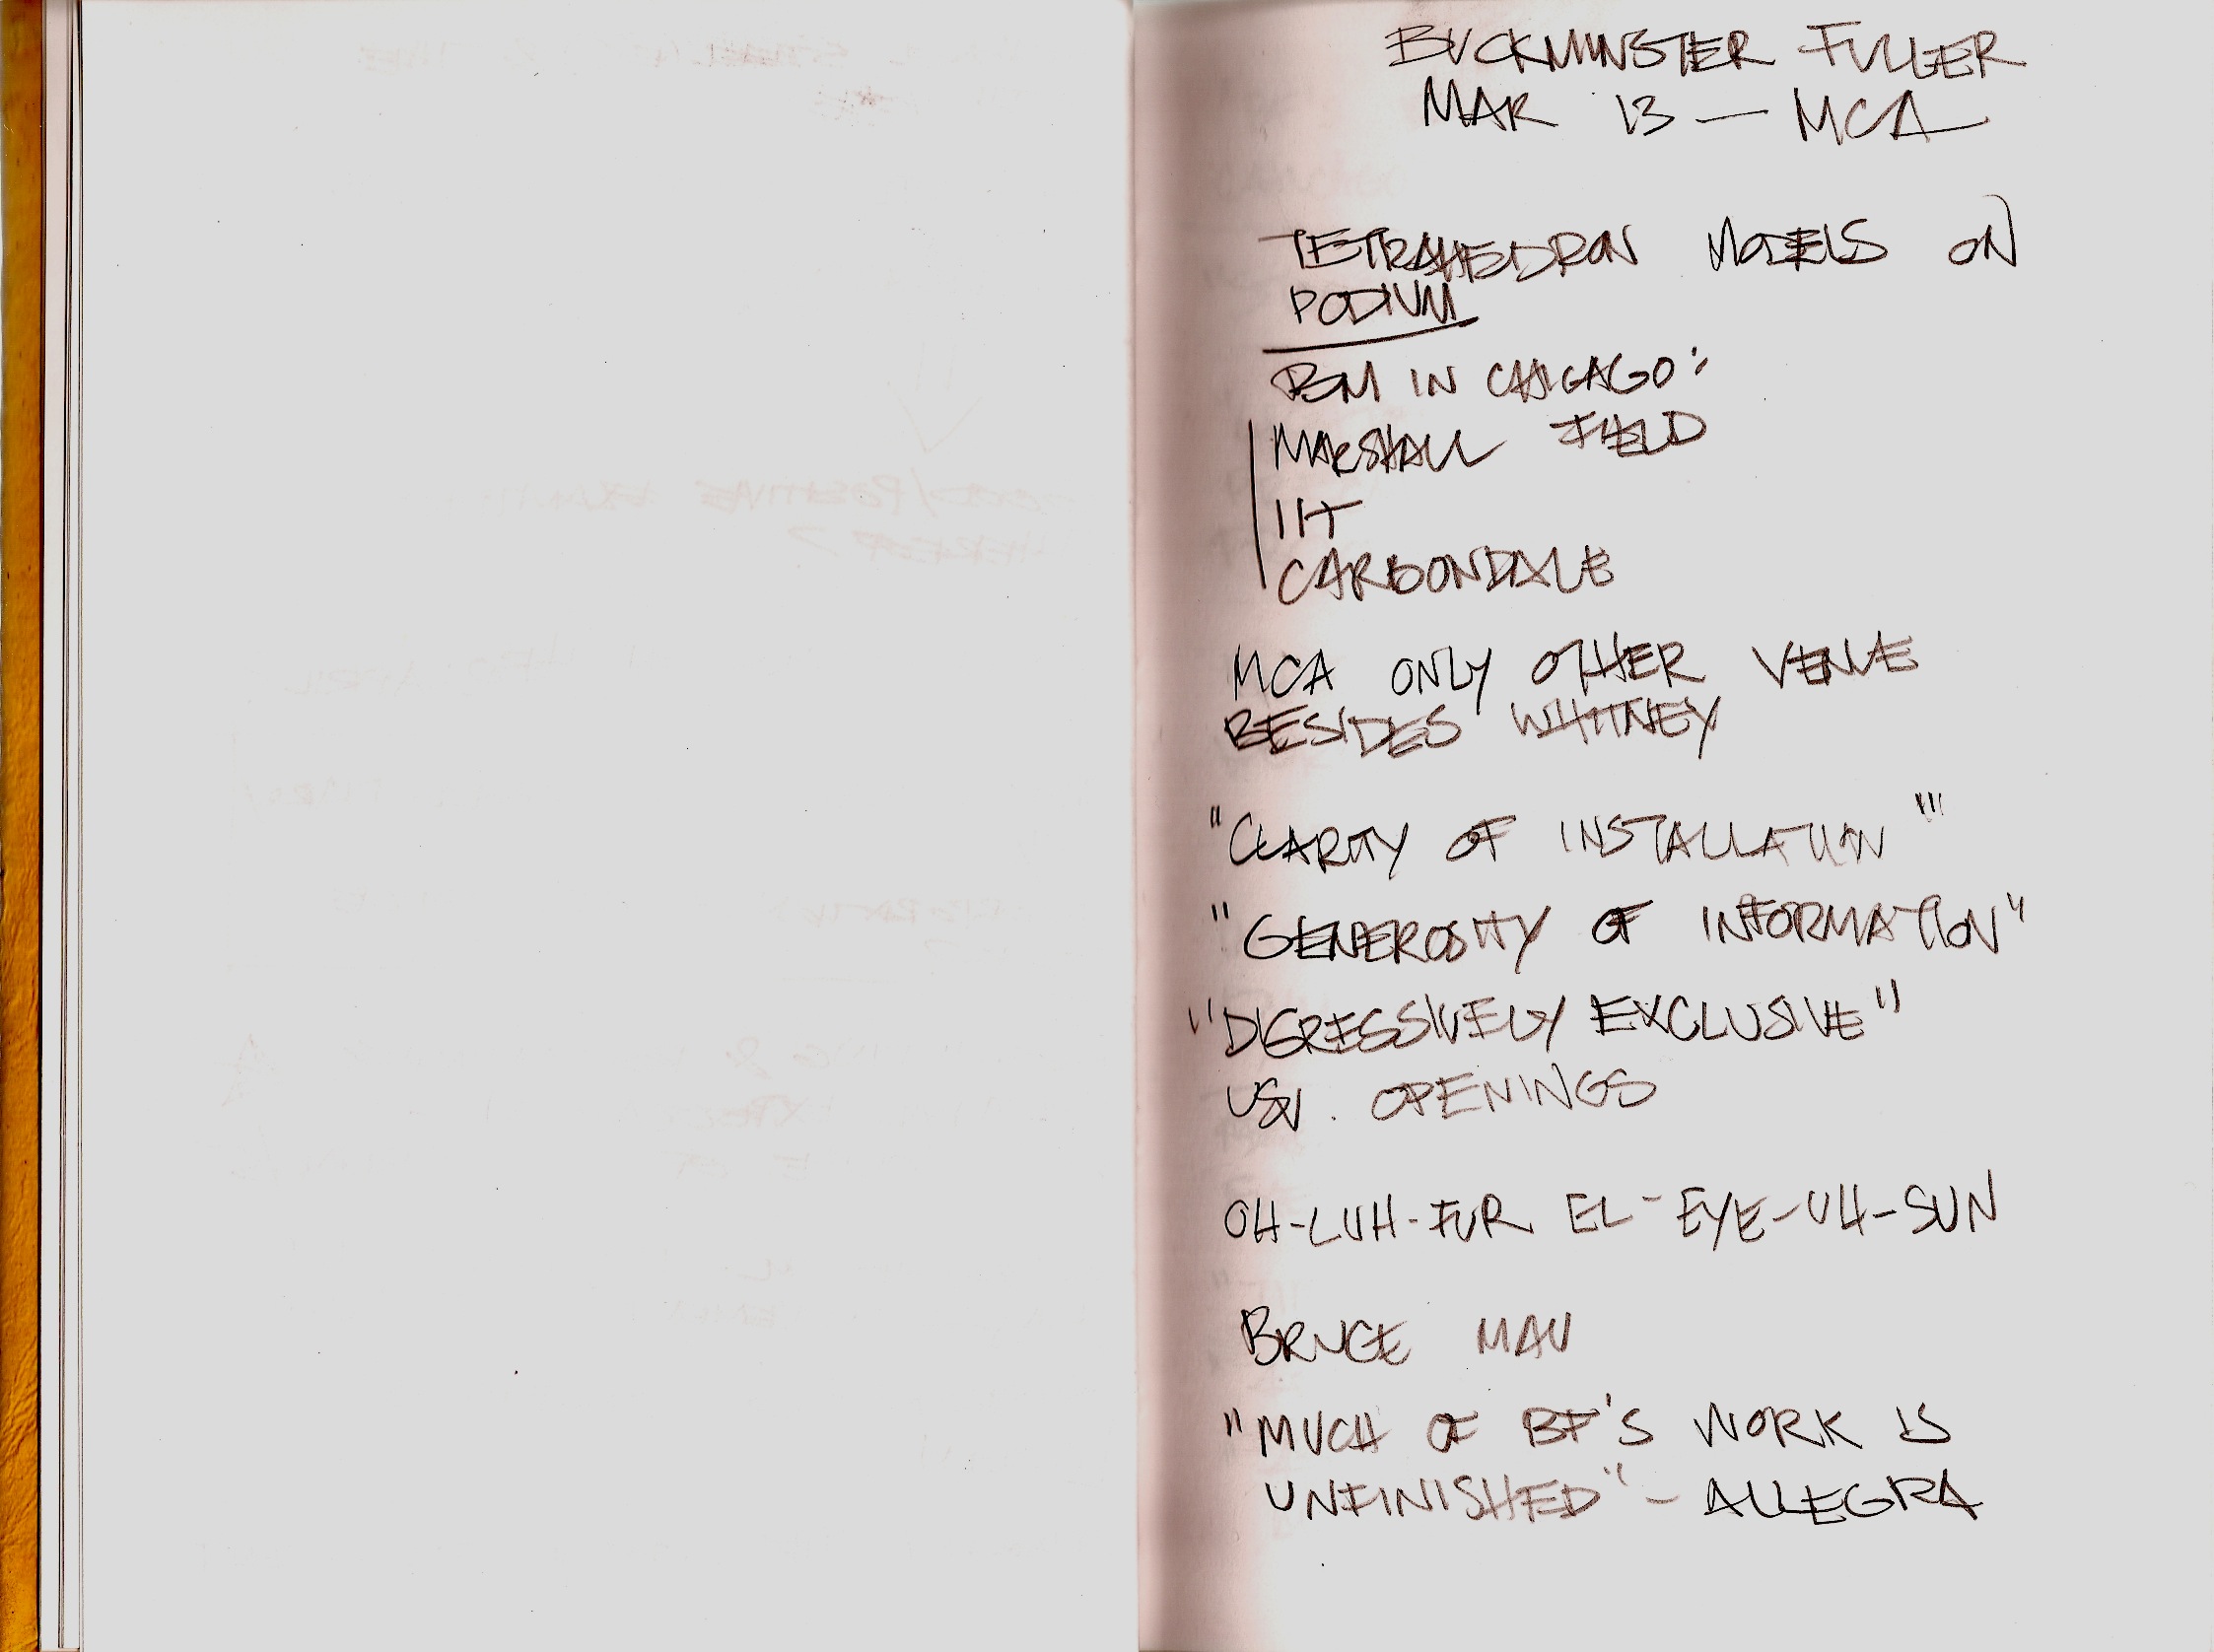 BUCKMINSTER FULLER
MAR 13 — MCA
TETRAHEDRON MODELS ON
PODIUM
BM IN CHICAGO:
MARSHALL FIELD
IIT
CARBONDALE
MCA ONLY OTHER VENUE
BESIDES WHITNEY
"CLARITY OF INSTALLATION"
"GENEROSITY OF INFORMATION"
"DIGRESSIVELY EXCLUSIVE"
OPENINGS
OH-LUH-FUR EL-EYE-UH-SUN
BRUCE MAU
"MUCH OF BF'S WORK IS
UNFINISHED" - ALLEGRA